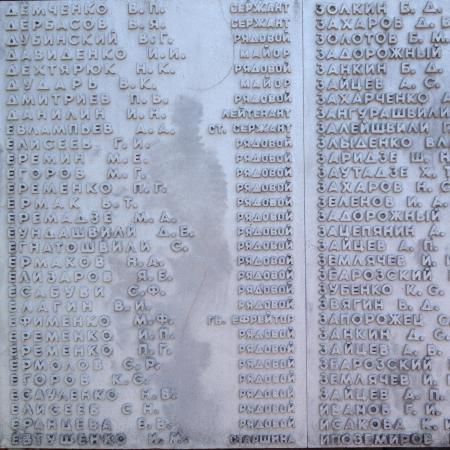 ДЕМЧЕНКО В.П. СЕРЖАНТ
ДЕРБАСОВ В.Я. СЕРЖАНТ
ДУБИНСКИЙ В.Г. РЯДОВОЙ
ДАВИДЕНКО И.И. МАЙОР
ДЕХТЯРЮК Н.К. РЯДОВОЙ
ДУДАРЬ В.К. МАЙОР
ДМИТРИЕВ П.В. РЯДОВОЙ
ДАНИЛИН И.Н. ЛЕЙТЕНАНТ
ЕВЛАМПЬЕВ А.А. СТ. СЕРЖАНТ
ЕЛИСЕЕВ Г.И. РЯДОВОЙ
ЕРЕМИН М.Е. РЯДОВОЙ
ЕГОРОВ М.Г. РЯДОВОЙ
ЕРЕМЕНКО П.Г. РЯДОВОЙ
ЕРМАК Ь.Т. РЯДОВОЙ
ЕРЕМАДЗЕ М.А. РЯДОВОЙ
РЯДОВОЙ
РЯДОВОЙ
ЕРМАКОВ Н.Д. РЯДОВОЙ
ЕЛИЗАРОВ Я.Е. РЯДОВОЙ
ЕСАБУВИ С.Ф. РЯДОВОЙ
ЕЛАГИН В.И. РЯДОВОЙ
ЕФИМЕНКО М.Ф. ГВ. ЕФРЕЙТОР
ЕРЕМЕНКО И.П. РЯДОВОЙ
ЕРЕМЕНКО П.Г. РЯДОВОЙ
ЕРМОЛОВ С.Р. РЯДОВОЙ
ЕГОРОВ К.С. РЯДОВОЙ
ЕСАУЛЕНКО Н.В. РЯДОВОЙ
ЕЛИСЕЕВ С.Н. РЯДОВОЙ
ЕРАНЦЕВА Е.В. РЯДОВОЙ
ЕВТУШЕНКО И.К. СТАРШИНА
ЗОЛКИН Б.Д.
ЗАХАРОВ Д.
ЗОЛОТОВ Б.М
ЗАДОРОЖНЫЙ
ЗАНКИН Б.Д.
ЗАЙЦЕВ А.С.
ЗАХАРЧЕНКО
ЗАНГУРАШВИЛИ
ЗАЛЕЙШВИЛИ Г
ЗЛЫДЕНКО ВЛ
ЗАРИДЗЕ Ш.Н
ЗАУТАДЗЕ Х.Т
ЗАХАРОВ Н.С
ЗЕЛЕНОВ И.А
ЗАДОРОЖНЫЙ
ЗАЦЕПЯНИН А.
ЗАЙЦЕВ А.П.
ЗЕМЛЯЧЕВ И.И
ЗБАРОЗСКИЙ
ЗУБЕНКО К.С.
ЗВЯГИН В.Д.
ЗАПОРОЖЕЦ С
ЗАНКИН Д.С.
ЗАЙЦЕВ А.В.
ЗБАРОЗСКИЙ
ЗЕМЛЯЧЕВ И
ЗАЙЦЕВ А.П
ИВАНОВ Г.И.
ИСАКОВА К.
ИПОЗЕМИРОВ